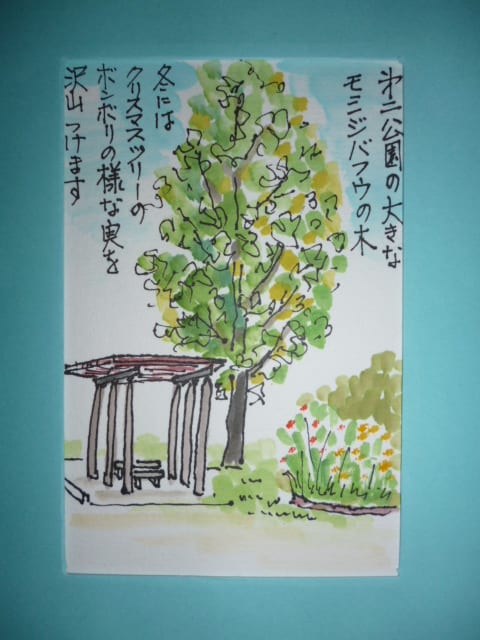 㐧二公園の大きな
モミジバフウの木
冬には
クリスマスツリーの
ボンボリの様な実を
沢山つけます